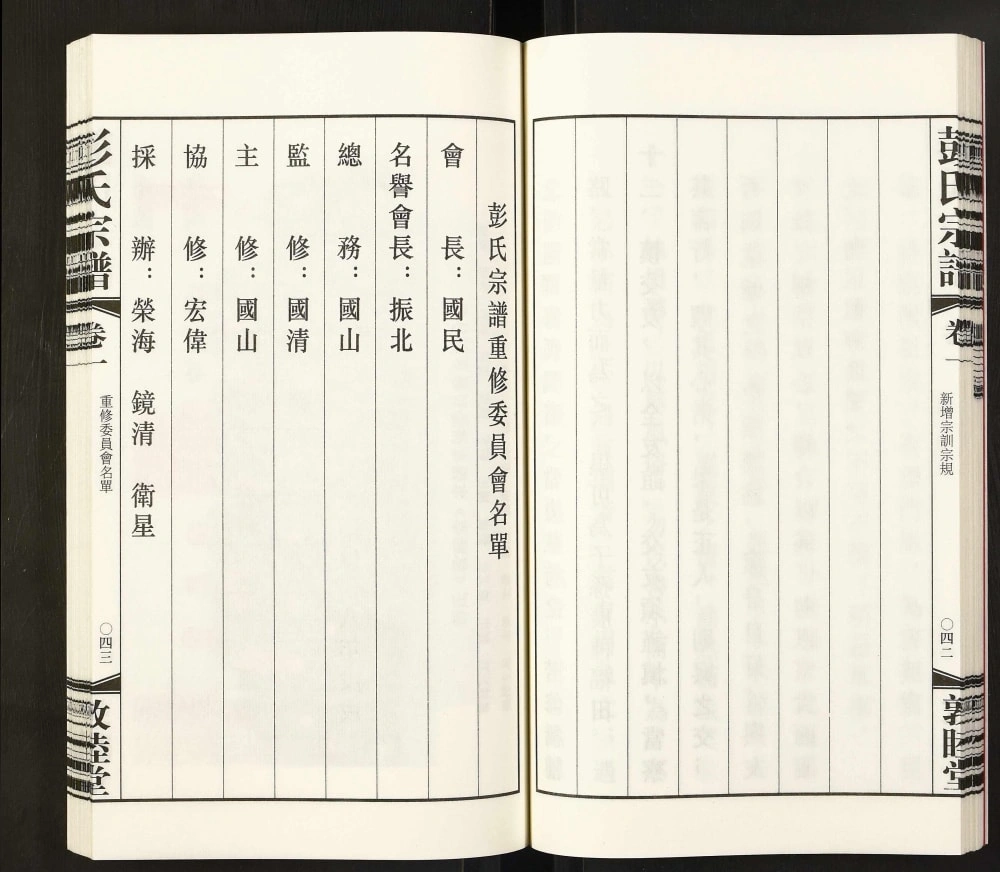 彭氏宗譜
卷一
新增宗訓宗規
〇四二
敦睦堂
彭氏宗譜重修委員會名單
會長：國民
名譽會長：振北
總務：國山
監修：國清
主修：國山
協修：宏偉
採辦：榮海 鏡清 衛星
彭氏宗譜
卷一
重修委員會名單
〇四三
敦睦堂